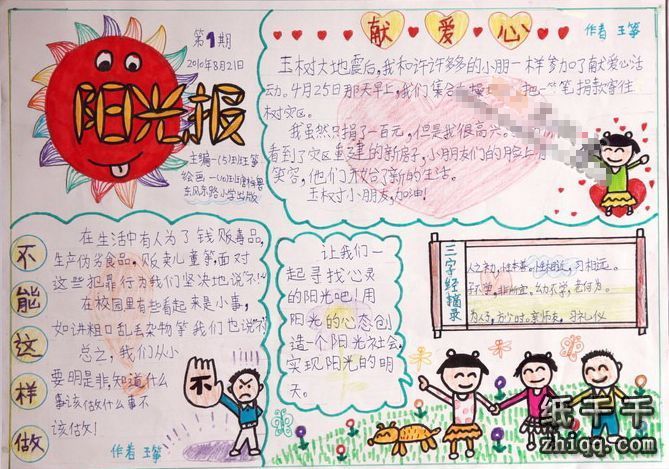 阳光报
第1期
2010年8月21日
东风东路小学出版
献爱心
作者 王筝
玉树大地震后,我和许许多多的小朋一样参加了献爱心活
动。4月25日那天早上,我们集合
把一笔捐款寄往
树灾区。
我虽然只捐了一百元,但是我很高兴。
看到了灾区重建的新房子,小朋友们的脸上
笑容,他们开始了新的生活。
玉树小朋友,加油!
不能这样做
在生活中有人为了钱贩毒品,
生产伪劣食品,贩卖儿童等,面对
这些犯罪行为我们坚决地说“不!”
在校园里有些看起来是小事,
如讲粗口乱丢杂物等我们也说“不
总之,我们从小
要明是非,知道什么
事该做什么事不
该做!
作者 王筝
不
让我们一
起寻找心灵
的阳光吧!用
阳光的心态创
造一个阳光社会,
实现阳光的明
天。
三字经摘录
人之初,性本善。性相近,习相远。
子不学,非所宜。幼不学,老何为。
为人子,方少时。亲师友,习礼仪
纸千千
zhiqq.com